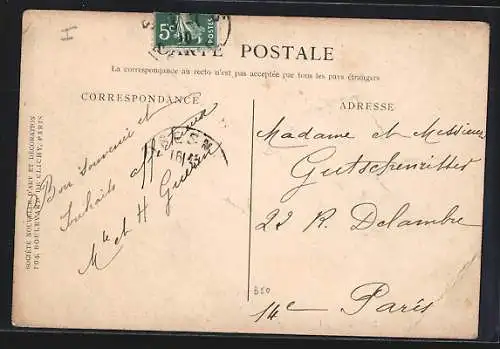 I
5c
POSTES
CARTE POSTALE
La correspondance au recto n'est pas acceptée par tous les pays étrangers
CORRESPONDANCE
ADRESSE
SOCIÉTÉ NOUVELLE D'ART ET DÉCORATION
104, BOULEVARD DE CLICHY, PARIS
Bon souvenir et
souhaits affectueux
Mle et H Guerin
Madame et Messieurs
Gutschenritter
22 R. Delambre
14e Paris
B50